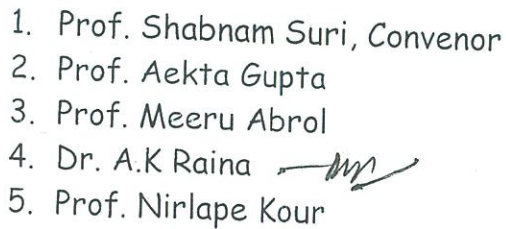 1. Prof. Shabnam Suri, Convenor
2. Prof. Aekta Gupta
3. Prof. Meeru Abrol
4. Dr. A.K Raina
5. Prof. Nirlape Kour